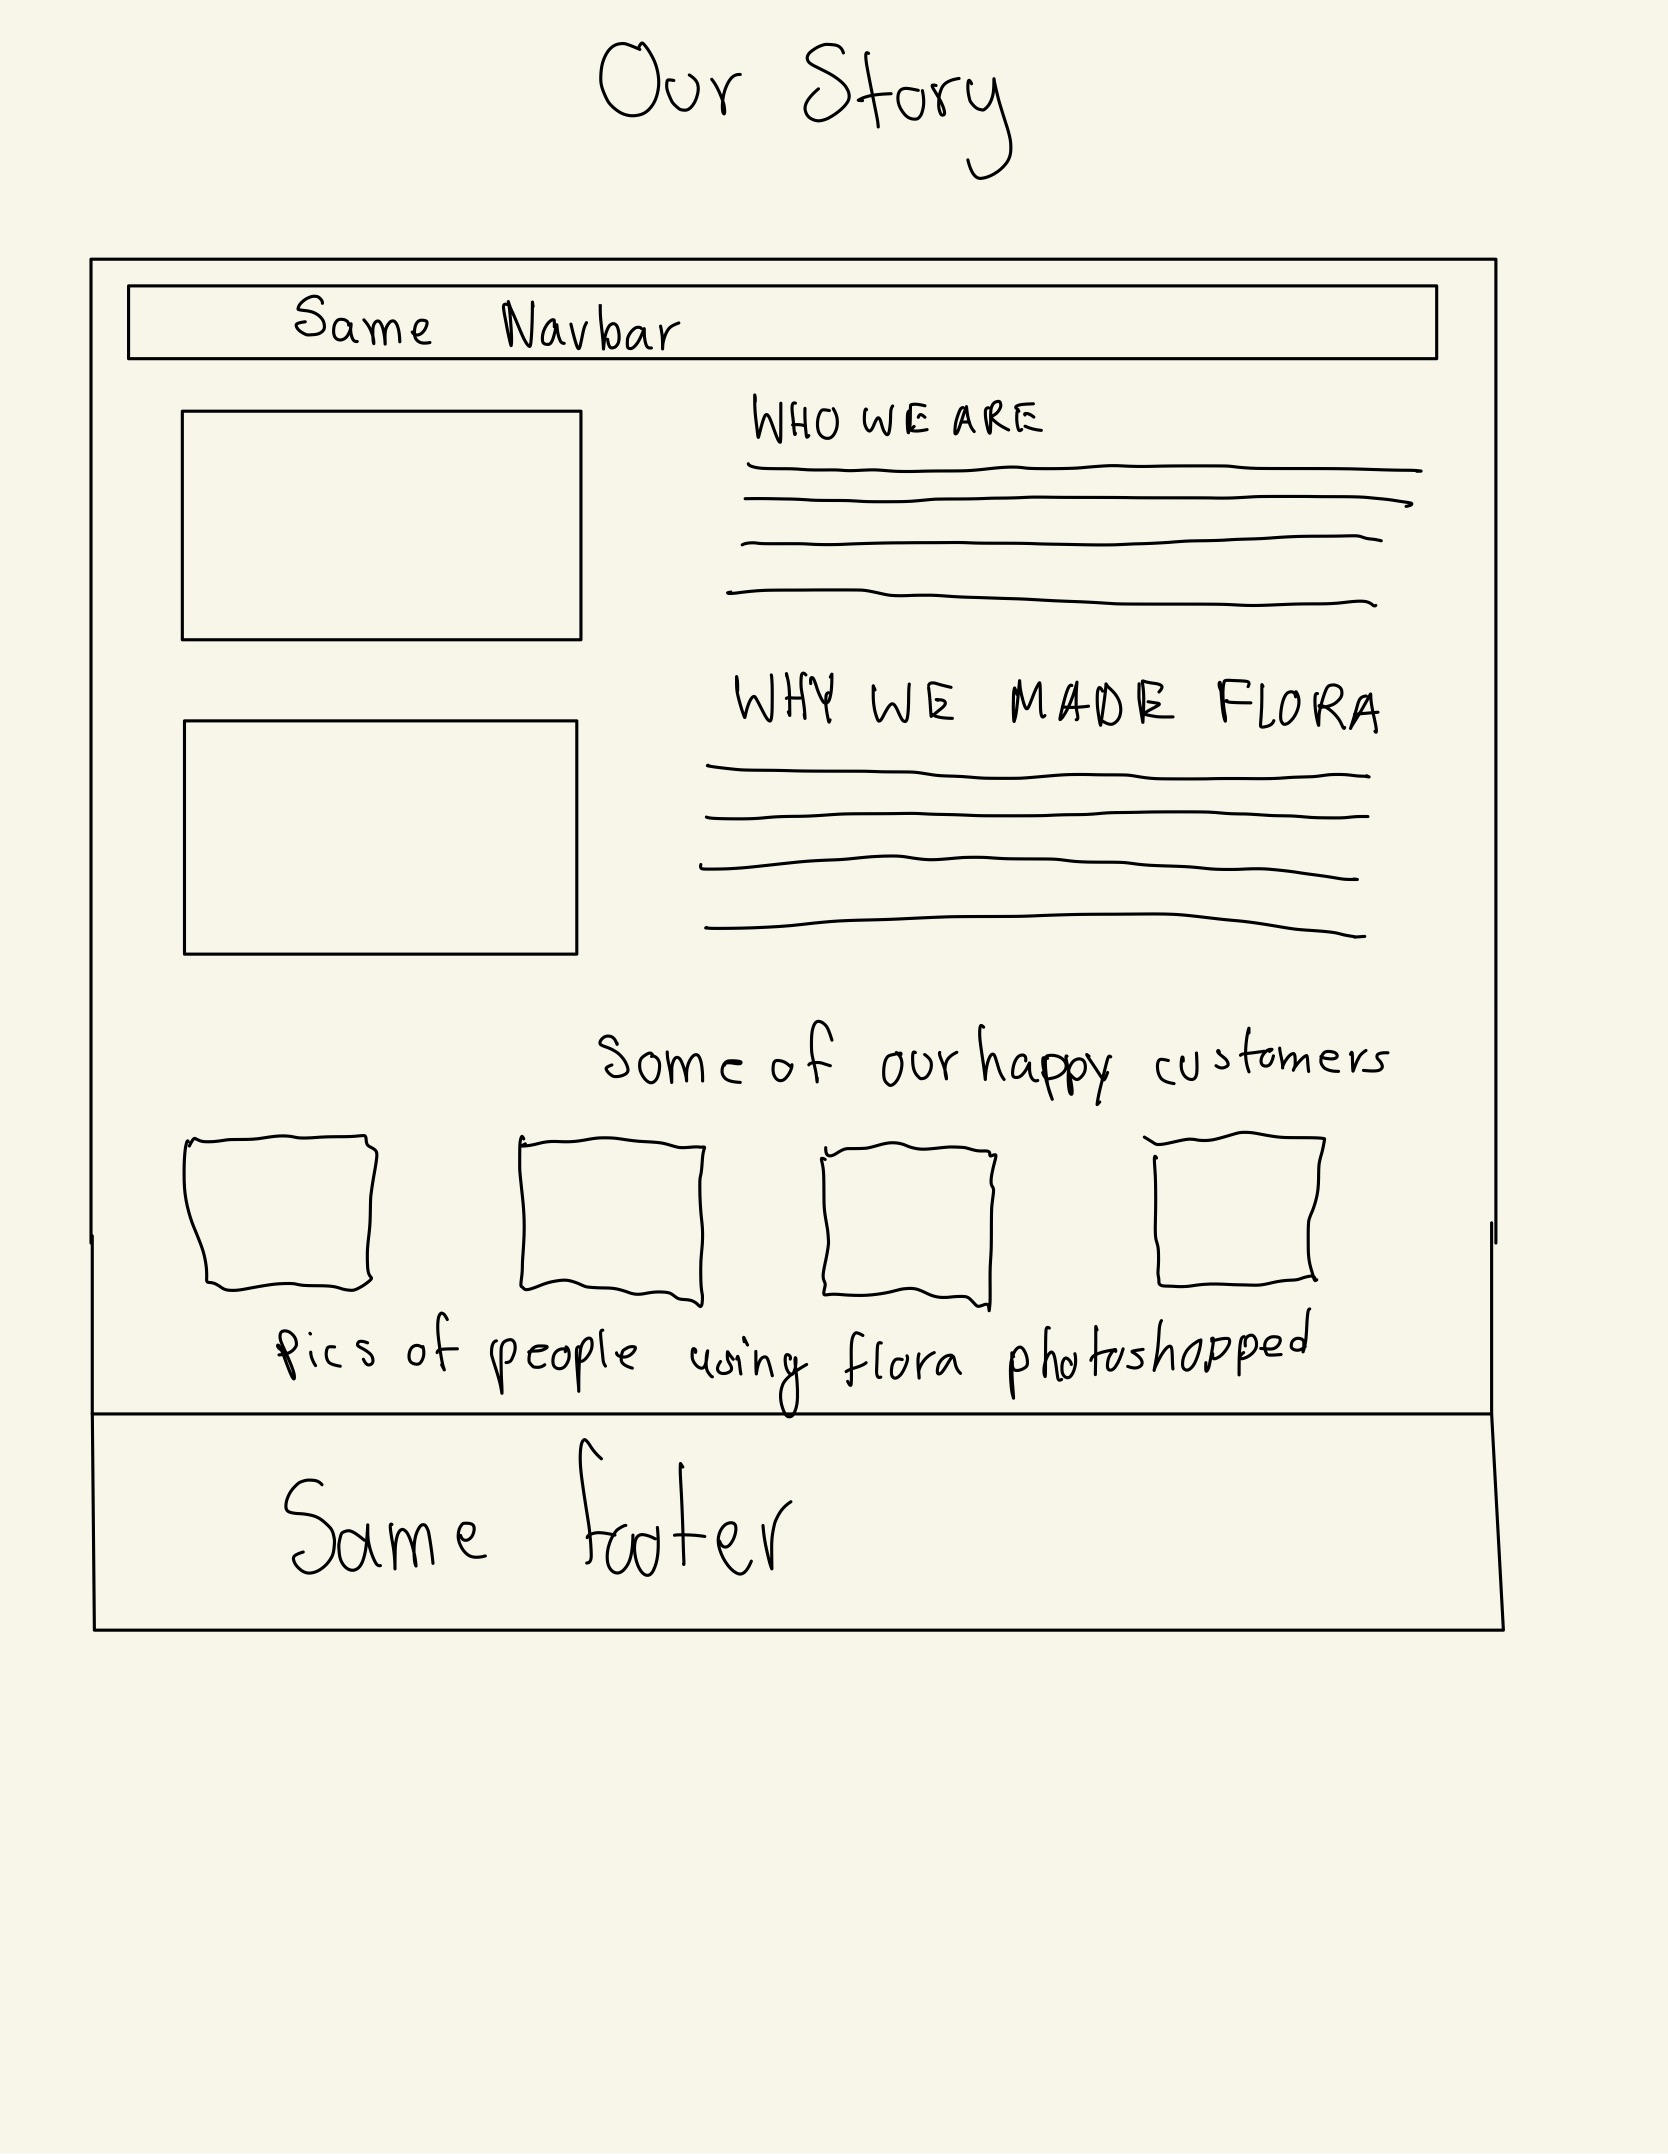 Our Story
Same Navbar
WHO WE ARE
WHY WE MADE FLORA
Some of our happy customers
pics of people using flora photoshopped
Same footer